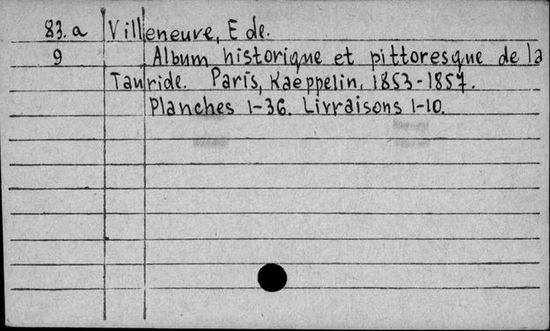 83.a Villeneuve, E de.
9 Album historique et pittoresque de la
Tauride. Paris, Kaeppelin, 1853-1857.
Planches 1-36. Livraisons 1-10.